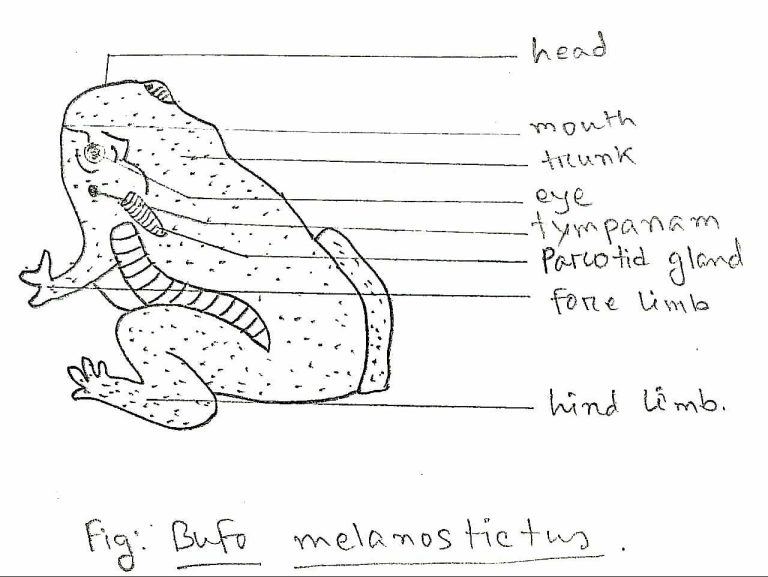 head
mouth
trunk
eye
tympanam
Parotid gland
fore limb
hind limb.
Fig: Bufo melanostictus.